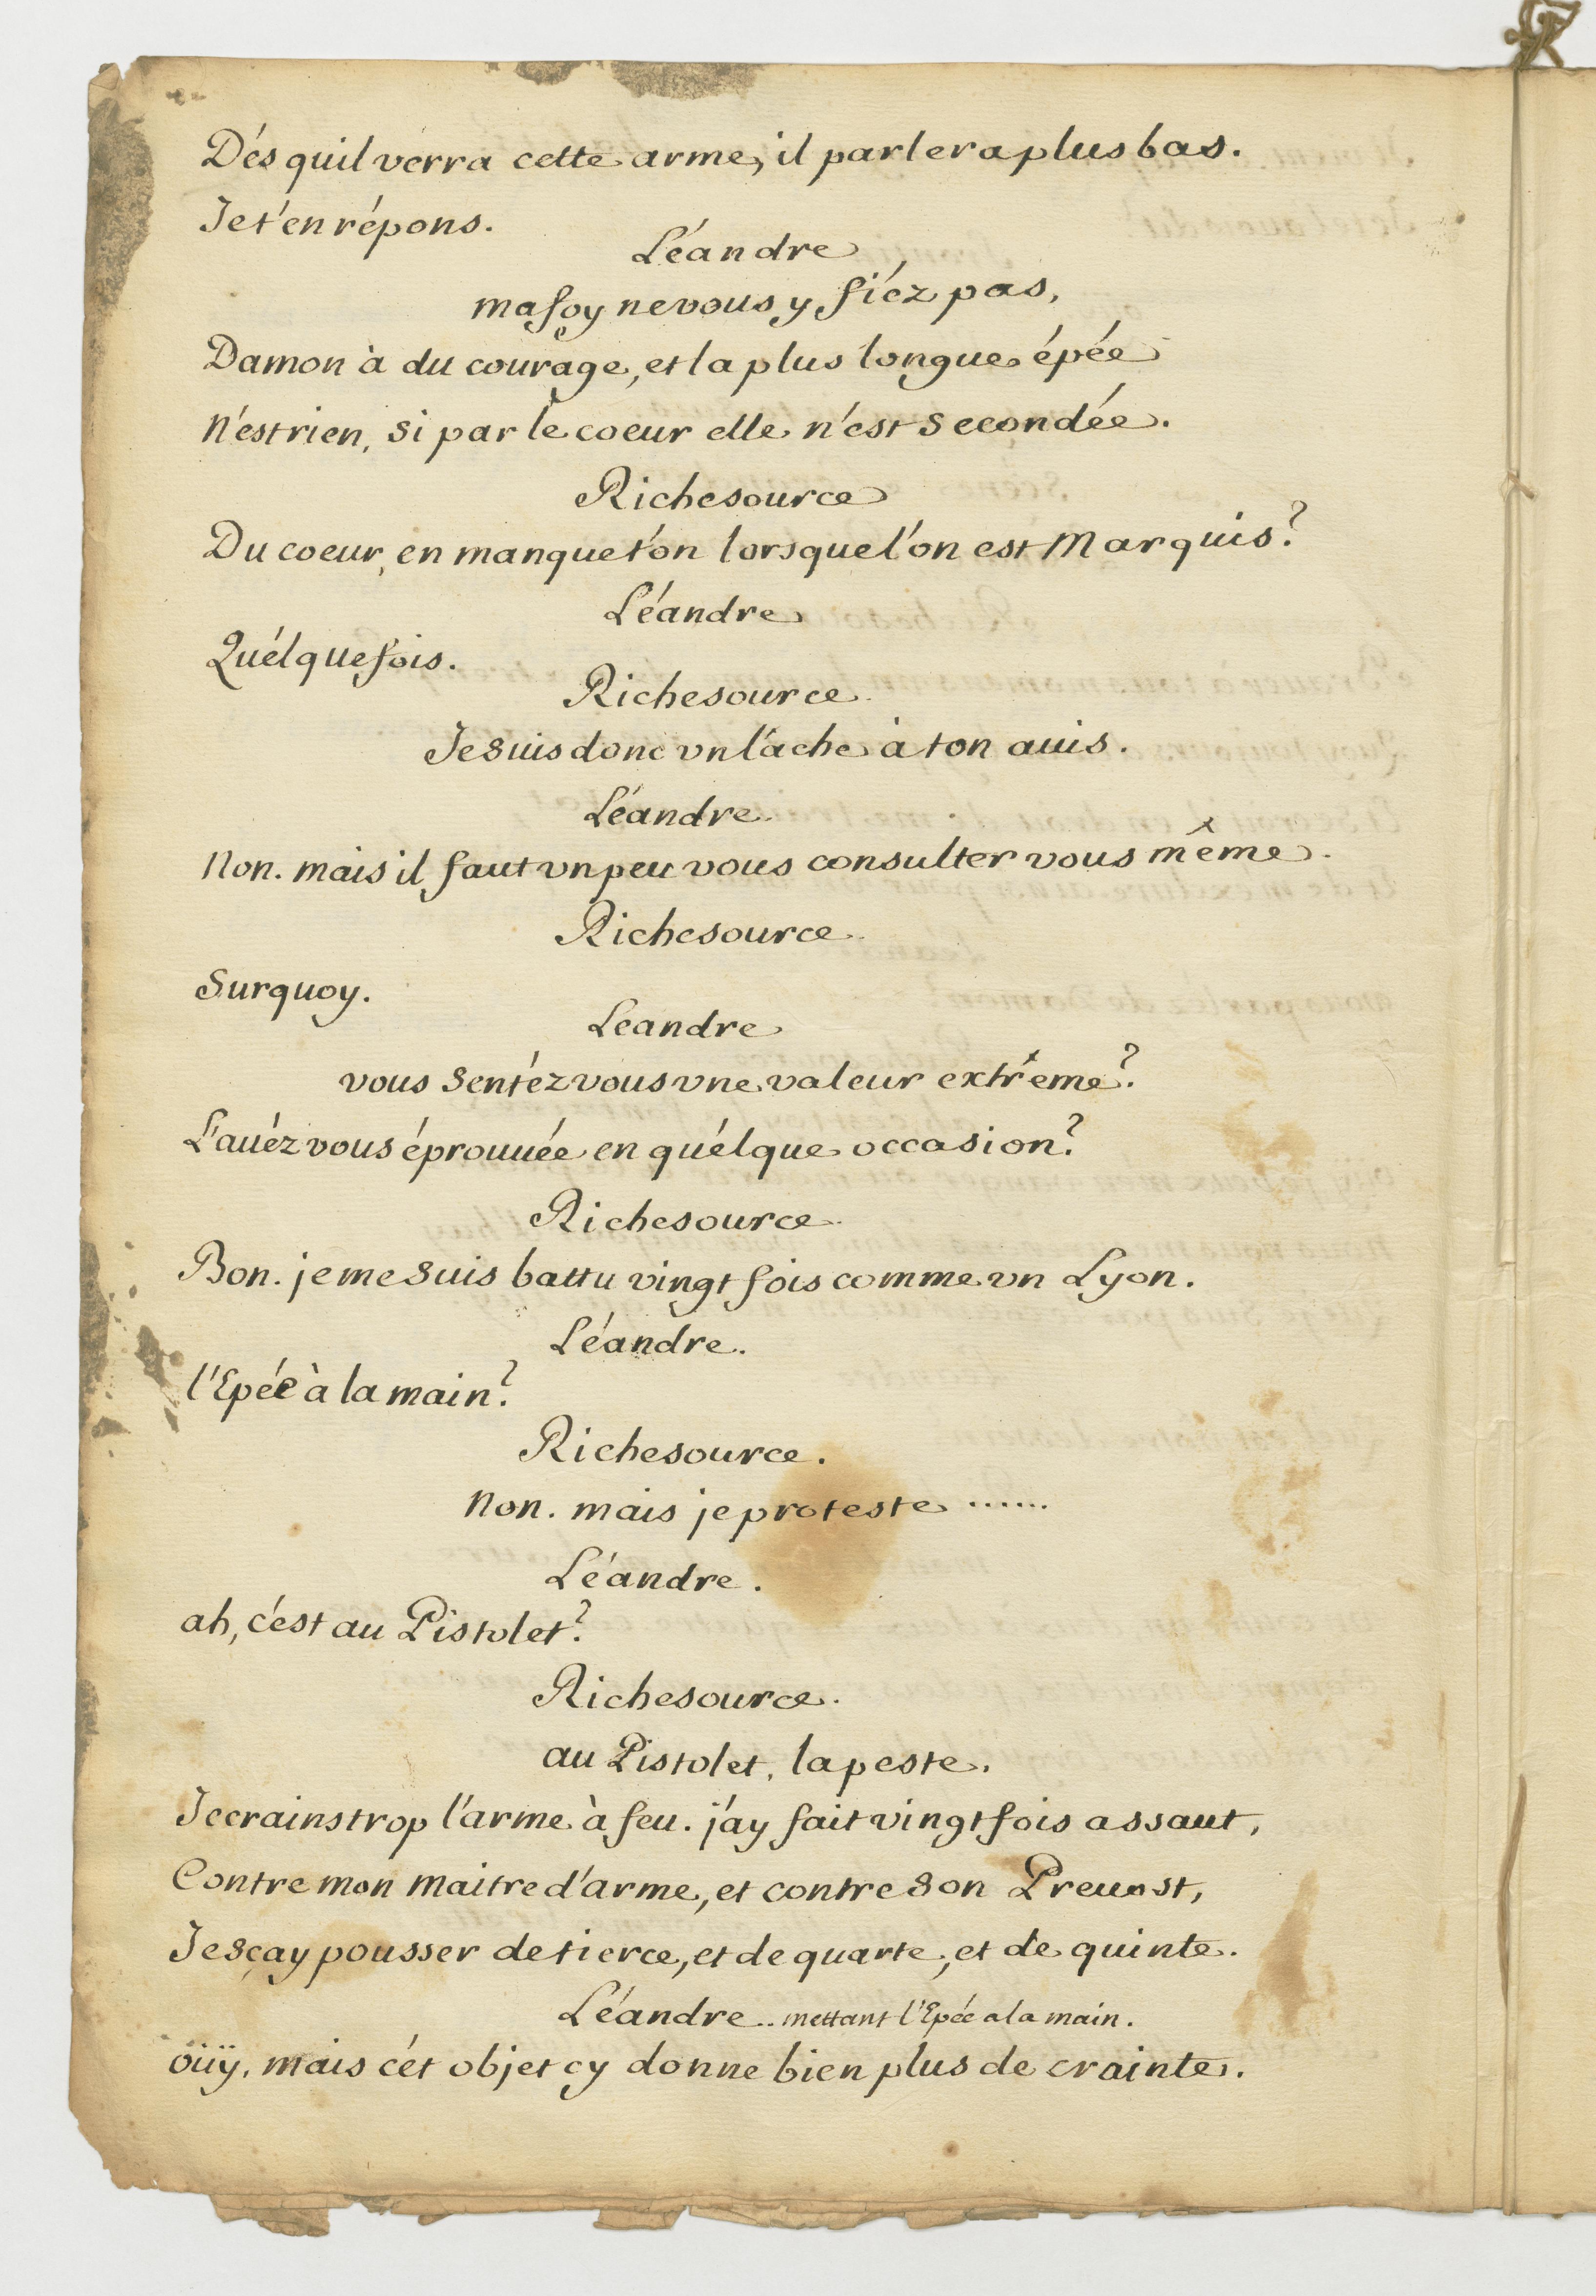 Dés quil verra cette arme, il parlera plus bas.
Je t'en répons.
Léandre
ma foy ne vous y fiéz pas,
Damon à du courage, et la plus longue épée
N'est rien, si par le coeur elle n'est Secondée.
Richesource
Du coeur, en manque t'on lorsque l'on est Marquis?
Léandre
Quélque fois.
Richesource
Je Suis donc vn lâche à ton auis.
Léandre
Non. mais il faut vn peu vous consulter vous même.
Richesource
Sur quoy.
Leandre
vous Sentéz vous vne valeur extrême?
L'auéz vous éprouuée en quélque occasion?
Richesource
Bon. je me Suis battu vingt fois comme vn Lyon.
Léandre.
l'Epée à la main?
Richesource.
Non. mais je proteste ......
Léandre.
ah, c'est au Pistolet?
Richesource.
au Pistolet, la peste,
Je crains trop l'arme à feu. j'ay fait vingt fois assaut,
Contre mon maitre d'arme, et contre Son Preuost,
Je Sçay pousser de tierce, et de quarte, et de quinte.
Léandre .. mettant l'Epée a la main.
oüÿ, mais cét objet cy donne bien plus de crainte.